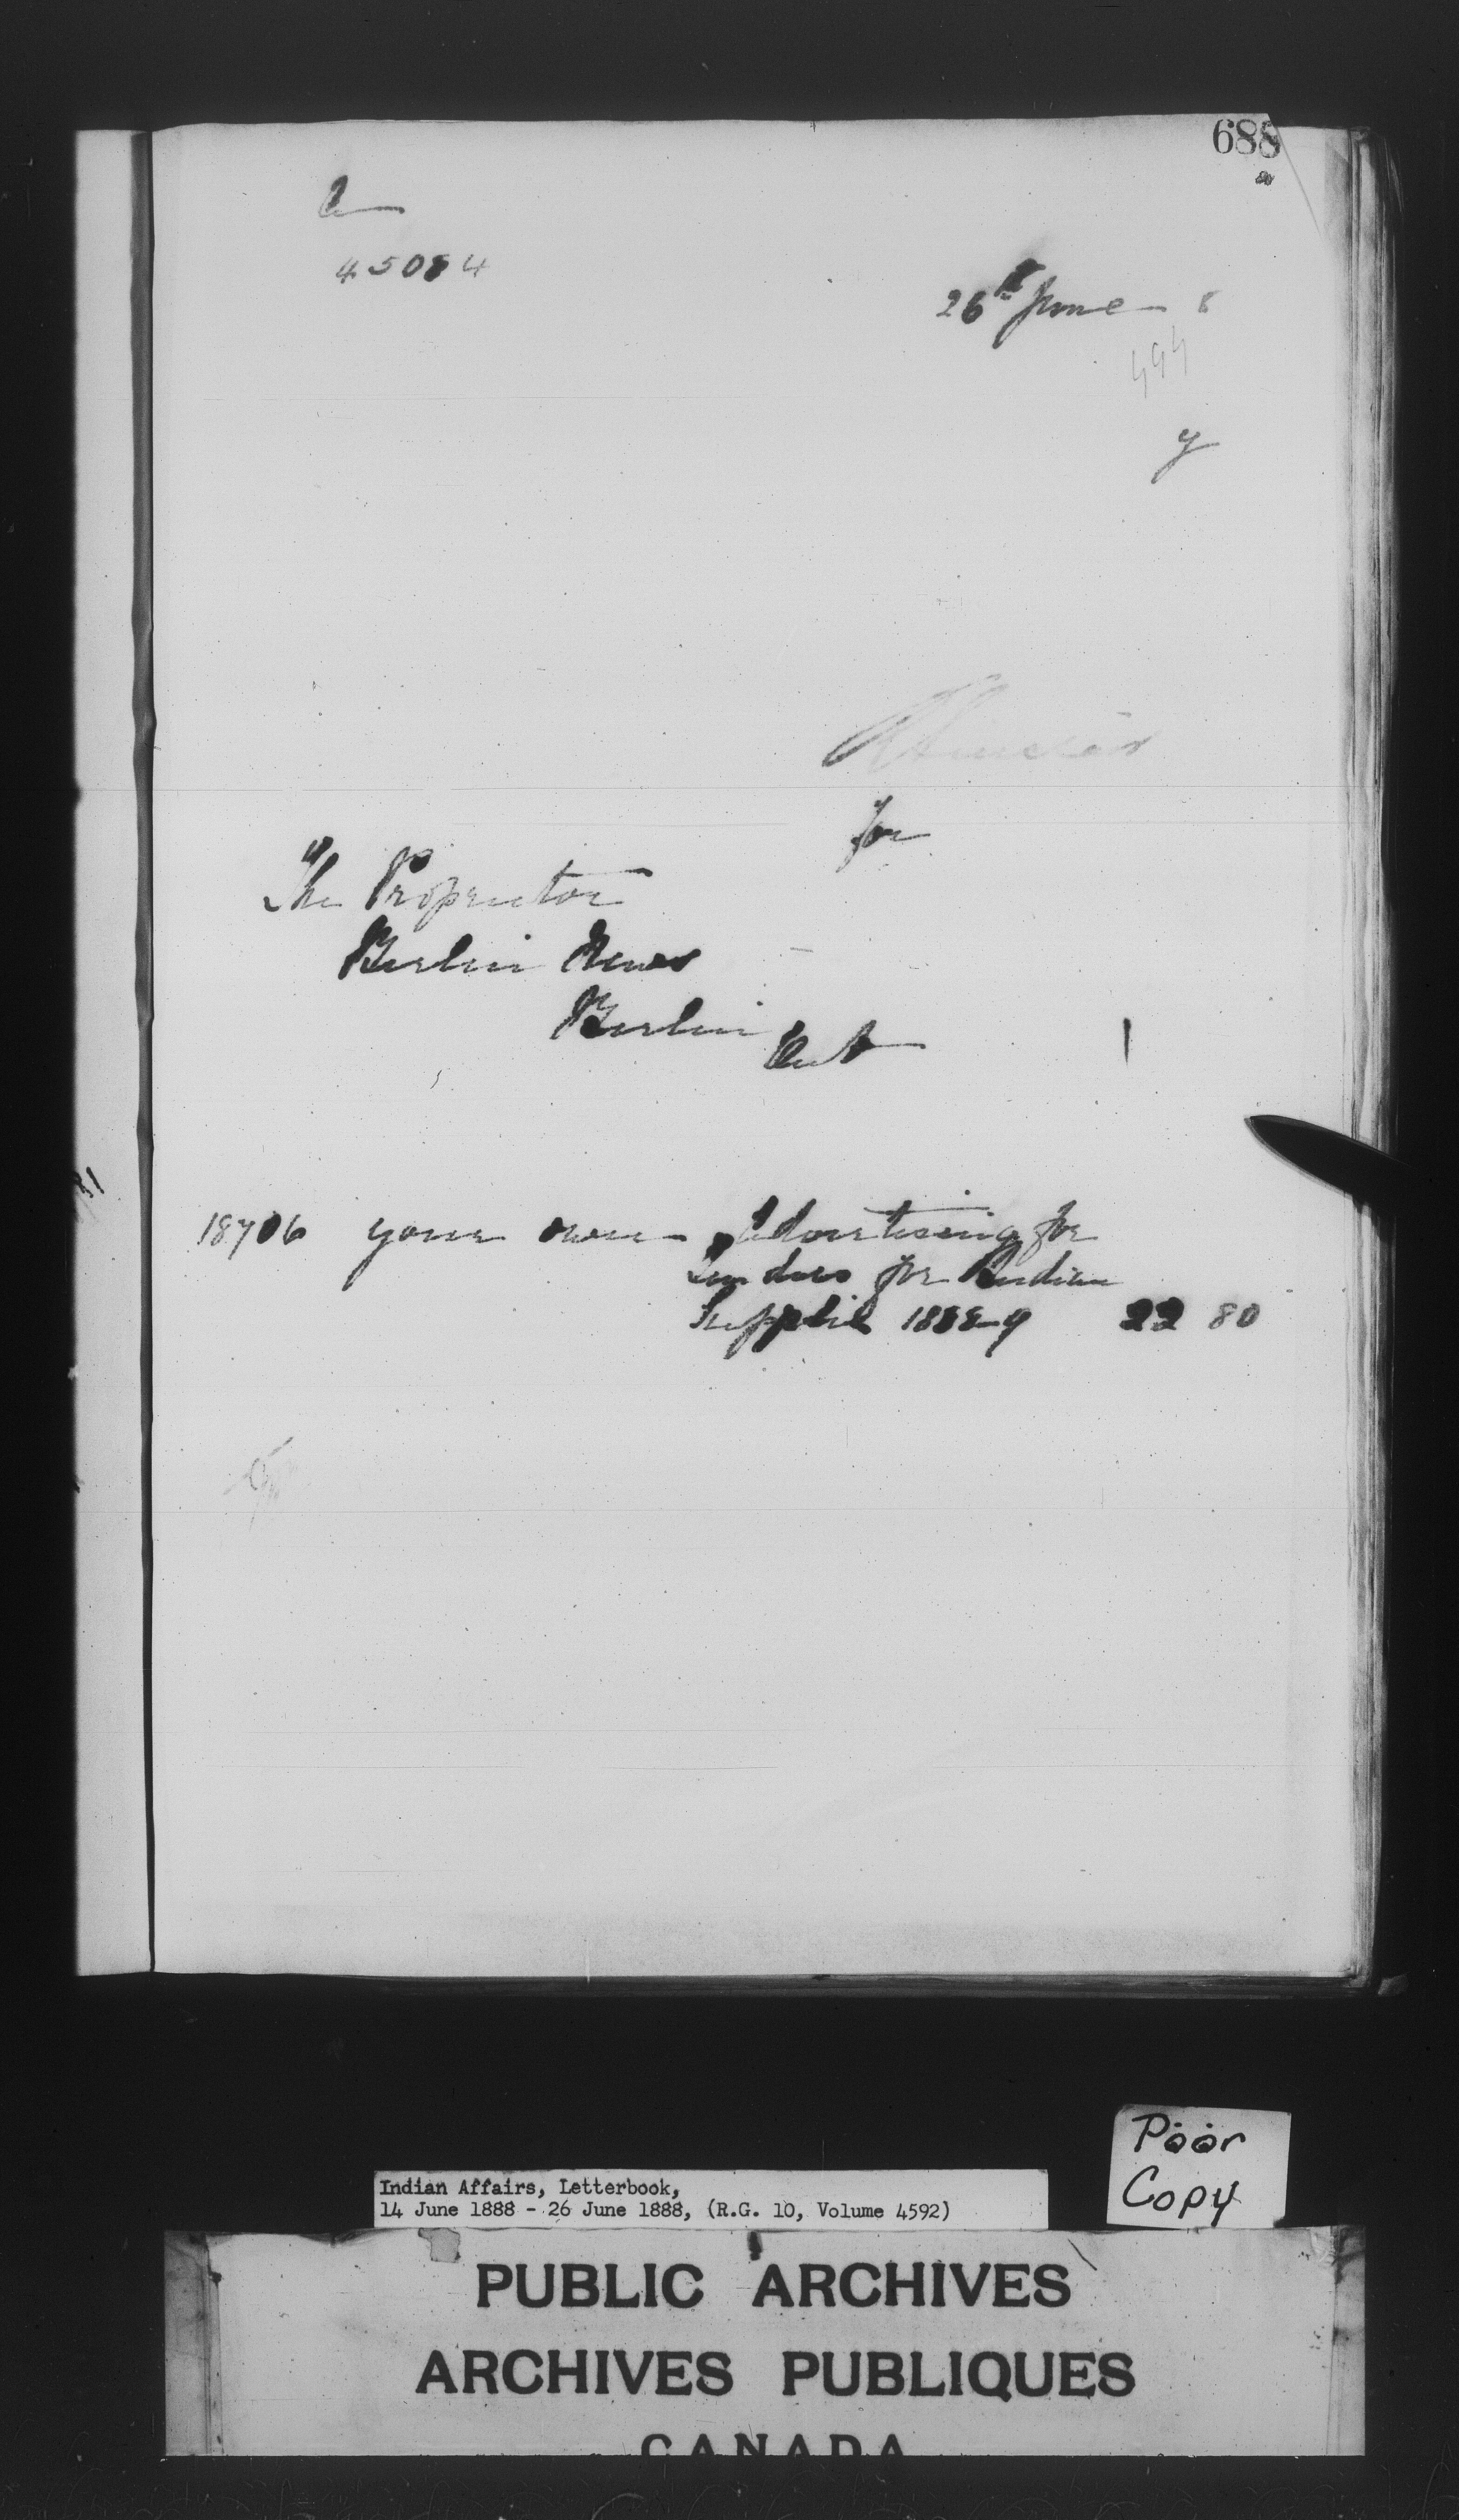 688
45084
26th June 8
494
y
for
The Proprietor
Berlin News
Berlin Ont
18706 your own Advertising for
Tenders for Indian
Supplies 1888-9 22 80
Poor
Copy
Indian Affairs, Letterbook,
14 June 1888 - 26 June 1888, (R.G. 10, Volume 4592)
PUBLIC ARCHIVES
ARCHIVES PUBLIQUES
CANADA